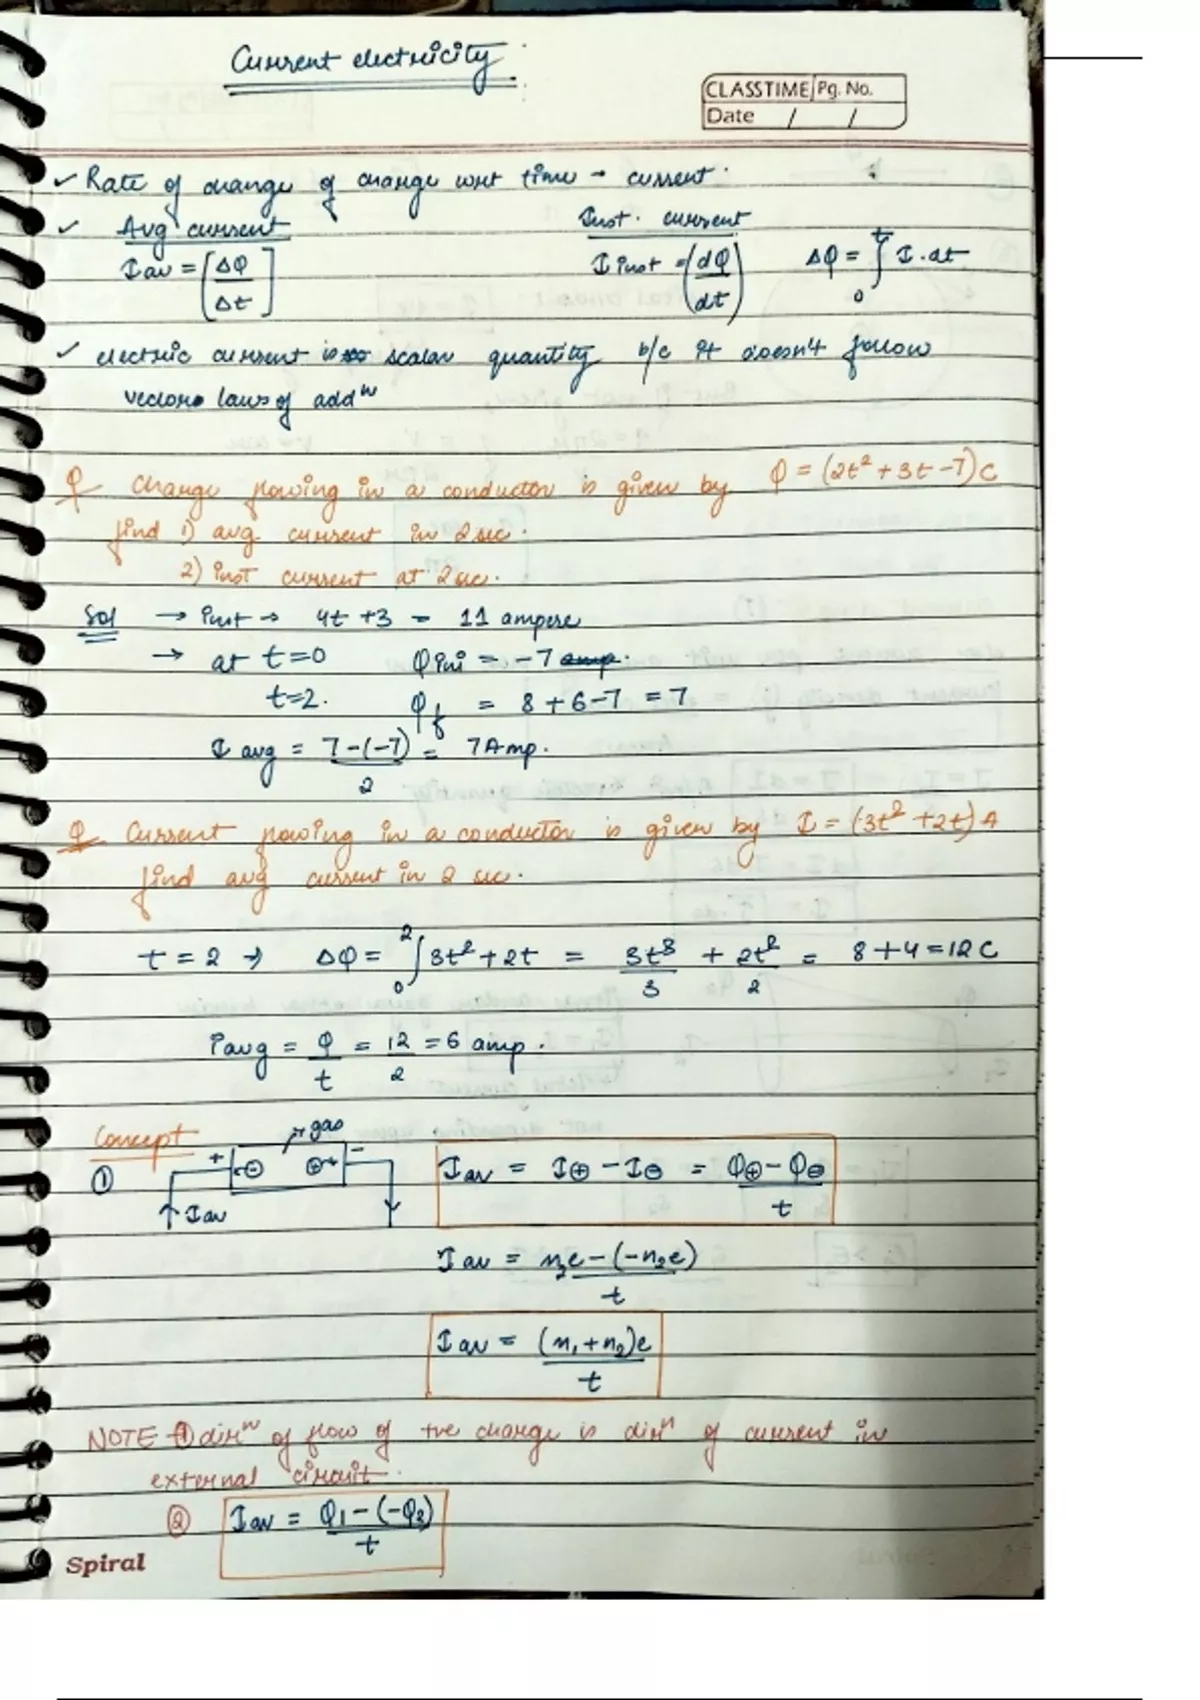 Current electricity
CLASSTIME Pg. No.
Date / /
✓ Rate of change of charge wrt time → current.
✓ Avg current Inst. current
I av = [ΔQ/Δt] I inst = (dQ/dt) ΔQ = ∫₀ᵗ I.dt
✓ electric current is scalar quantity b/c it doesn't follow
vector laws of addⁿ
Q Charge flowing in a conductor is given by Q = (2t² + 3t - 7) C
find 1) avg current in 2 sec.
2) inst current at 2 sec.
Sol → inst → 4t + 3 = 11 ampere
→ at t=0 Q ini = -7 amp.
t=2. Qf = 8 + 6 - 7 = 7
I avg = 7-(-7)/2 = 7 Amp.
Q Current flowing in a conductor is given by I = (3t² + 2t) A
find avg current in 2 sec.
t = 2 → ΔQ = ∫₀² 3t² + 2t = 3t³/3 + 2t²/2 = 8 + 4 = 12 C
i avg = Q/t = 12/2 = 6 amp.
Concept
① + ⊖ ⊕ - gas
I av
I av = I⊕ - I⊖ = Q⊕ - Q⊖/t
I av = n₁e - (-n₂e)/t
I av = (n₁ + n₂)e/t
NOTE - ① dirⁿ of flow of +ve charge is dirⁿ of current in
external circuit.
② I av = Q₁ - (-Q₂)/t
Spiral